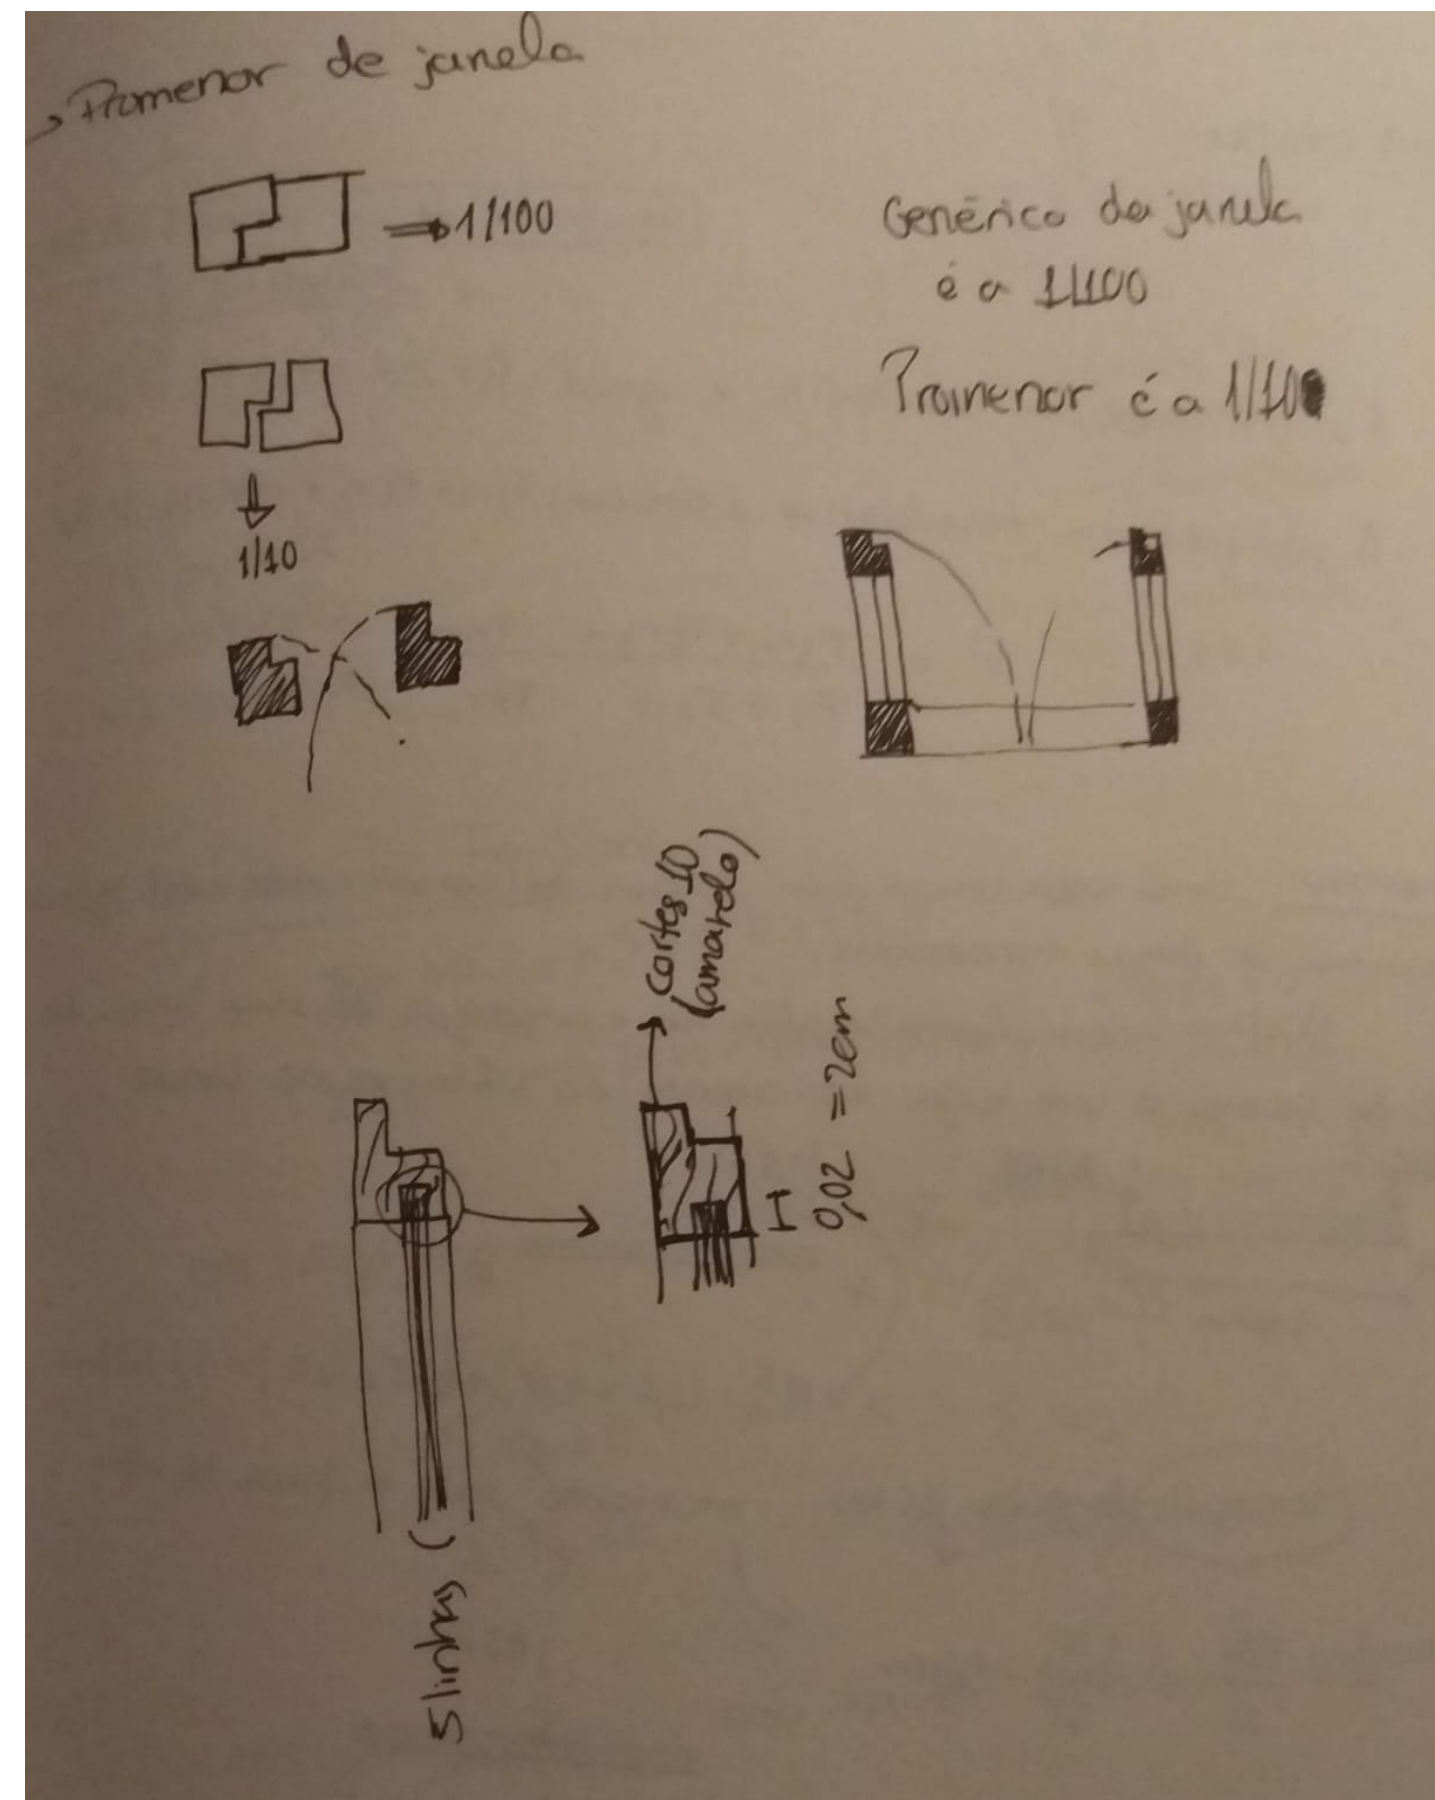 Promenor de janela
1/100
Genérico da janela
é a 1/100
Promenor é a 1/10
1/10
cortes 10
(amarelo)
0,02 = 2cm
5 linhas